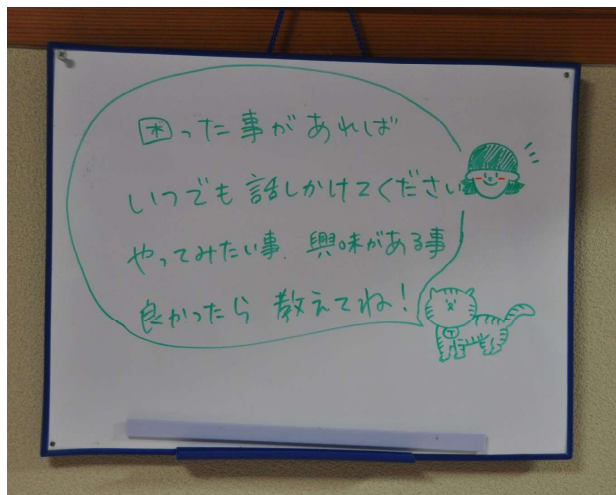 困った事があれば
いつでも話しかけてください
やってみたい事、興味がある事
良かったら 教えてね!